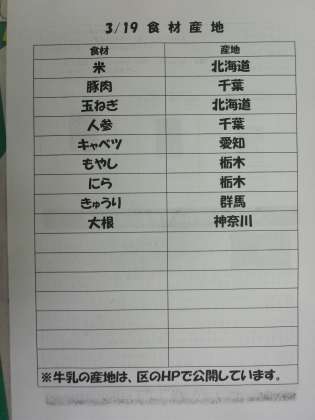 3/19 食材産地
食材 産地
米 北海道
豚肉 千葉
玉ねぎ 北海道
人参 千葉
キャベツ 愛知
もやし 栃木
にら 栃木
きゅうり 群馬
大根 神奈川
※牛乳の産地は、区のHPで公開しています。